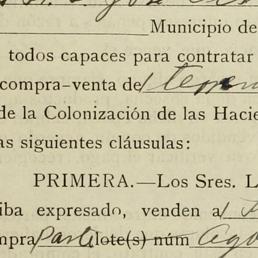 José
Municipio de
todos capaces para contratar
compra-venta de terren
de la Colonización de las Hacie
as siguientes cláusulas:
PRIMERA.—Los Sres. L
iba expresado, venden a
mpra Parte lote(s) núm